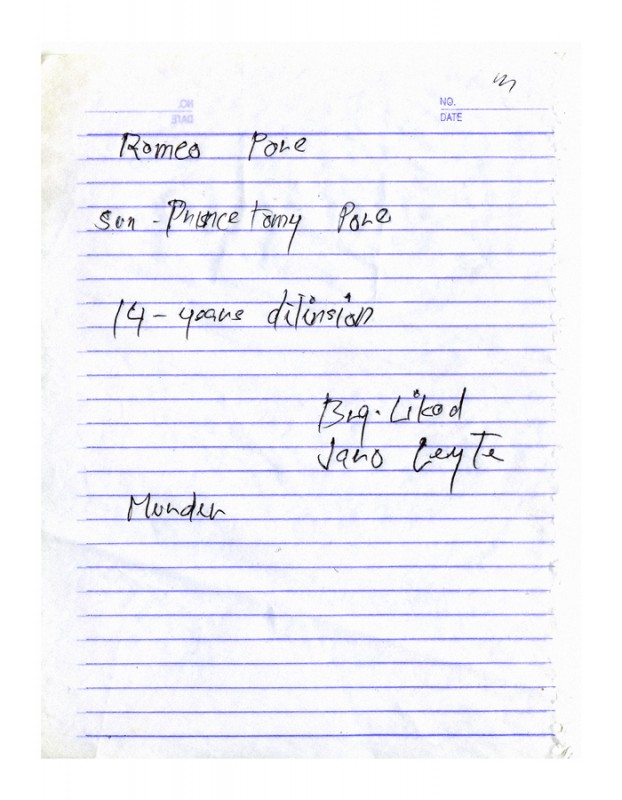 NO.
DATE
Romeo Pore
son - Prince tomy Pore
14 - years ditinsion
Brg. Likod
Jaro Leyte
Murder